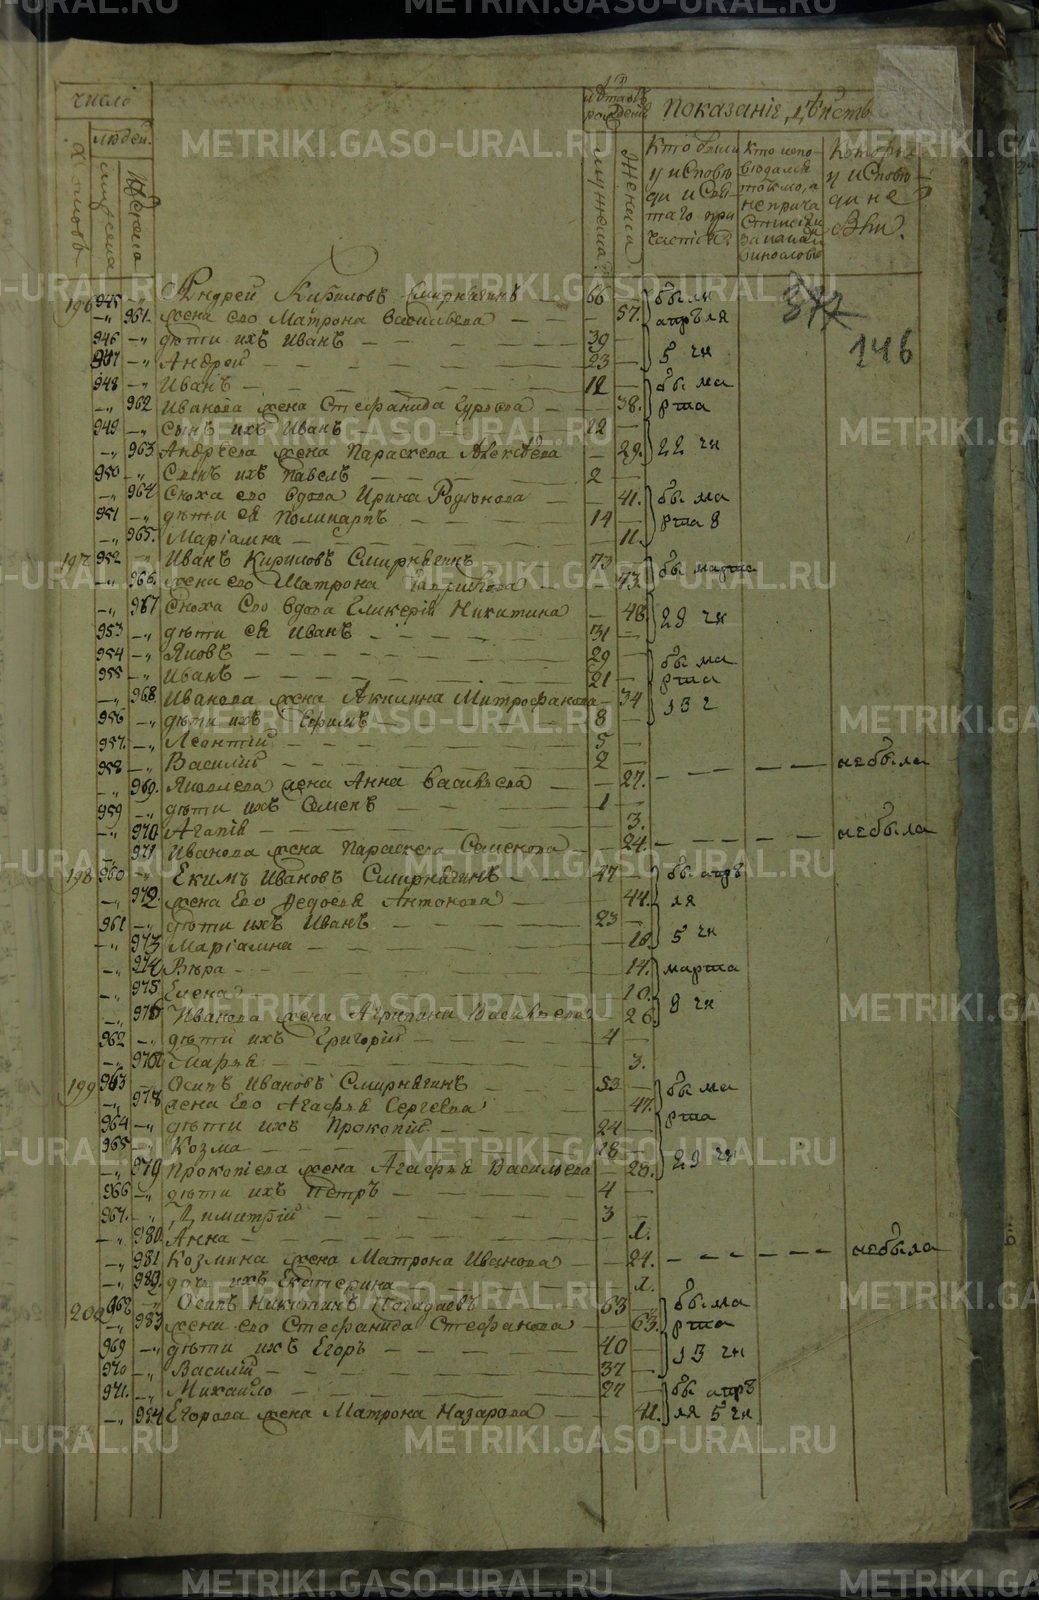 число
домовъ
людей.
мужеска
женска
Показаніе дѣйств
мужеска
Женска
Кто были
у исповѣ
ди и Свя
таго при
частія.
Кто испо
вѣдался
токмо, а
не прича
стился
и за какой
виною
Которыя
у исповѣ
ди не
были.
377
146
196 945 Андрей Кириловъ Смирнягинъ 66 были
961. жена его Матрона Васильева 57. апрѣля
946 дѣти ихъ Иванъ 39
947 Андрей 23 5 чи
948 Иванъ 12 бы ма
962 Иванова жена Стефанида Гурьева 38. рта
949 сынъ ихъ Иванъ 12
963 Андрѣева жена Параскева Алексѣева 29. 22 чи
950 Сынъ ихъ Павелъ 2
964 Сноха его вдова Ирина Родіонова 41. бы ма
951 дѣти ея Поликарпъ 14 рта 8
965. Маріамна 11.
197 952 Иванъ Кириловъ Смирнягинъ 73 бы марта
966. жена его Матрона Гаврилова 73.
967 Сноха Его вдова Гликерія Никитина 48. 29 чи
953 дѣти ея Иванъ 31
954 Яковъ 29 бы ма
955 Иванъ 21 рта
968. Иванова жена Акилина Митрофанова 34 13 ч
956 дѣти ихъ Ефимъ 8
957. Леонтій 5
958 Василій 2
969. Яковлева жена Анна Васильева 27. небыла
959 дѣти ихъ Семенъ 1
970 Агапія 3.
971 Иванова жена Параскева Семенова 24. небыла
198 960 Екимъ Ивановъ Смирнягинъ 47 бы апрѣ
972. жена Его Федосья Антонова 44. ля
961 дѣти ихъ Иванъ 23
973 Маріамна 18. 5 чи
974 Вѣра 14. марта
975 Елена 10.
976 Иванова жена Агрипина Васильева 26. 8 чи
962 дѣти ихъ Григорій 4
977 Марья 3.
199 963 Осипъ Ивановъ Смирнягинъ 53 бы ма
978 жена Его Агафья Сергеева 47. рта
964 дѣти ихъ Прокопій 24
965 Козма 18
979 Прокопіева жена Агафья Васильева 28. 29 чи
966 дѣти ихъ Петръ 4
967. Димитрій 3
980. Анна 1.
981 Козмина жена Матрона Иванова 24. небыла
982 дочь ихъ Екатерина 1.
200 968 Осипъ Никитинъ 63 бы ма
983 жена его Стефанида Стефанова 63. рта
969 дѣти ихъ Егоръ 40
970 Василій 37 13 чи
971. Михайло 27 бы апрѣ
984 Егорова жена Матрона Назарова 41. ля 5 чи
METRIKI.GASO-URAL.RU